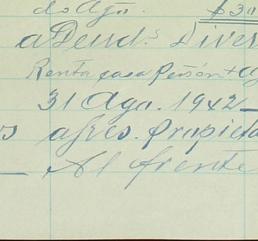 do Ago. $30
a Deud.s Diver
Renta casa Peñón + ag
31 Ago. 1942
s afvo. Propieta
Al frente